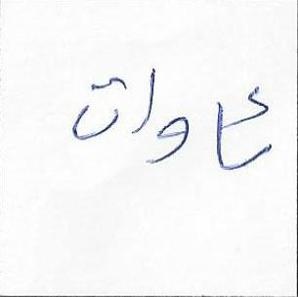 ئاوات